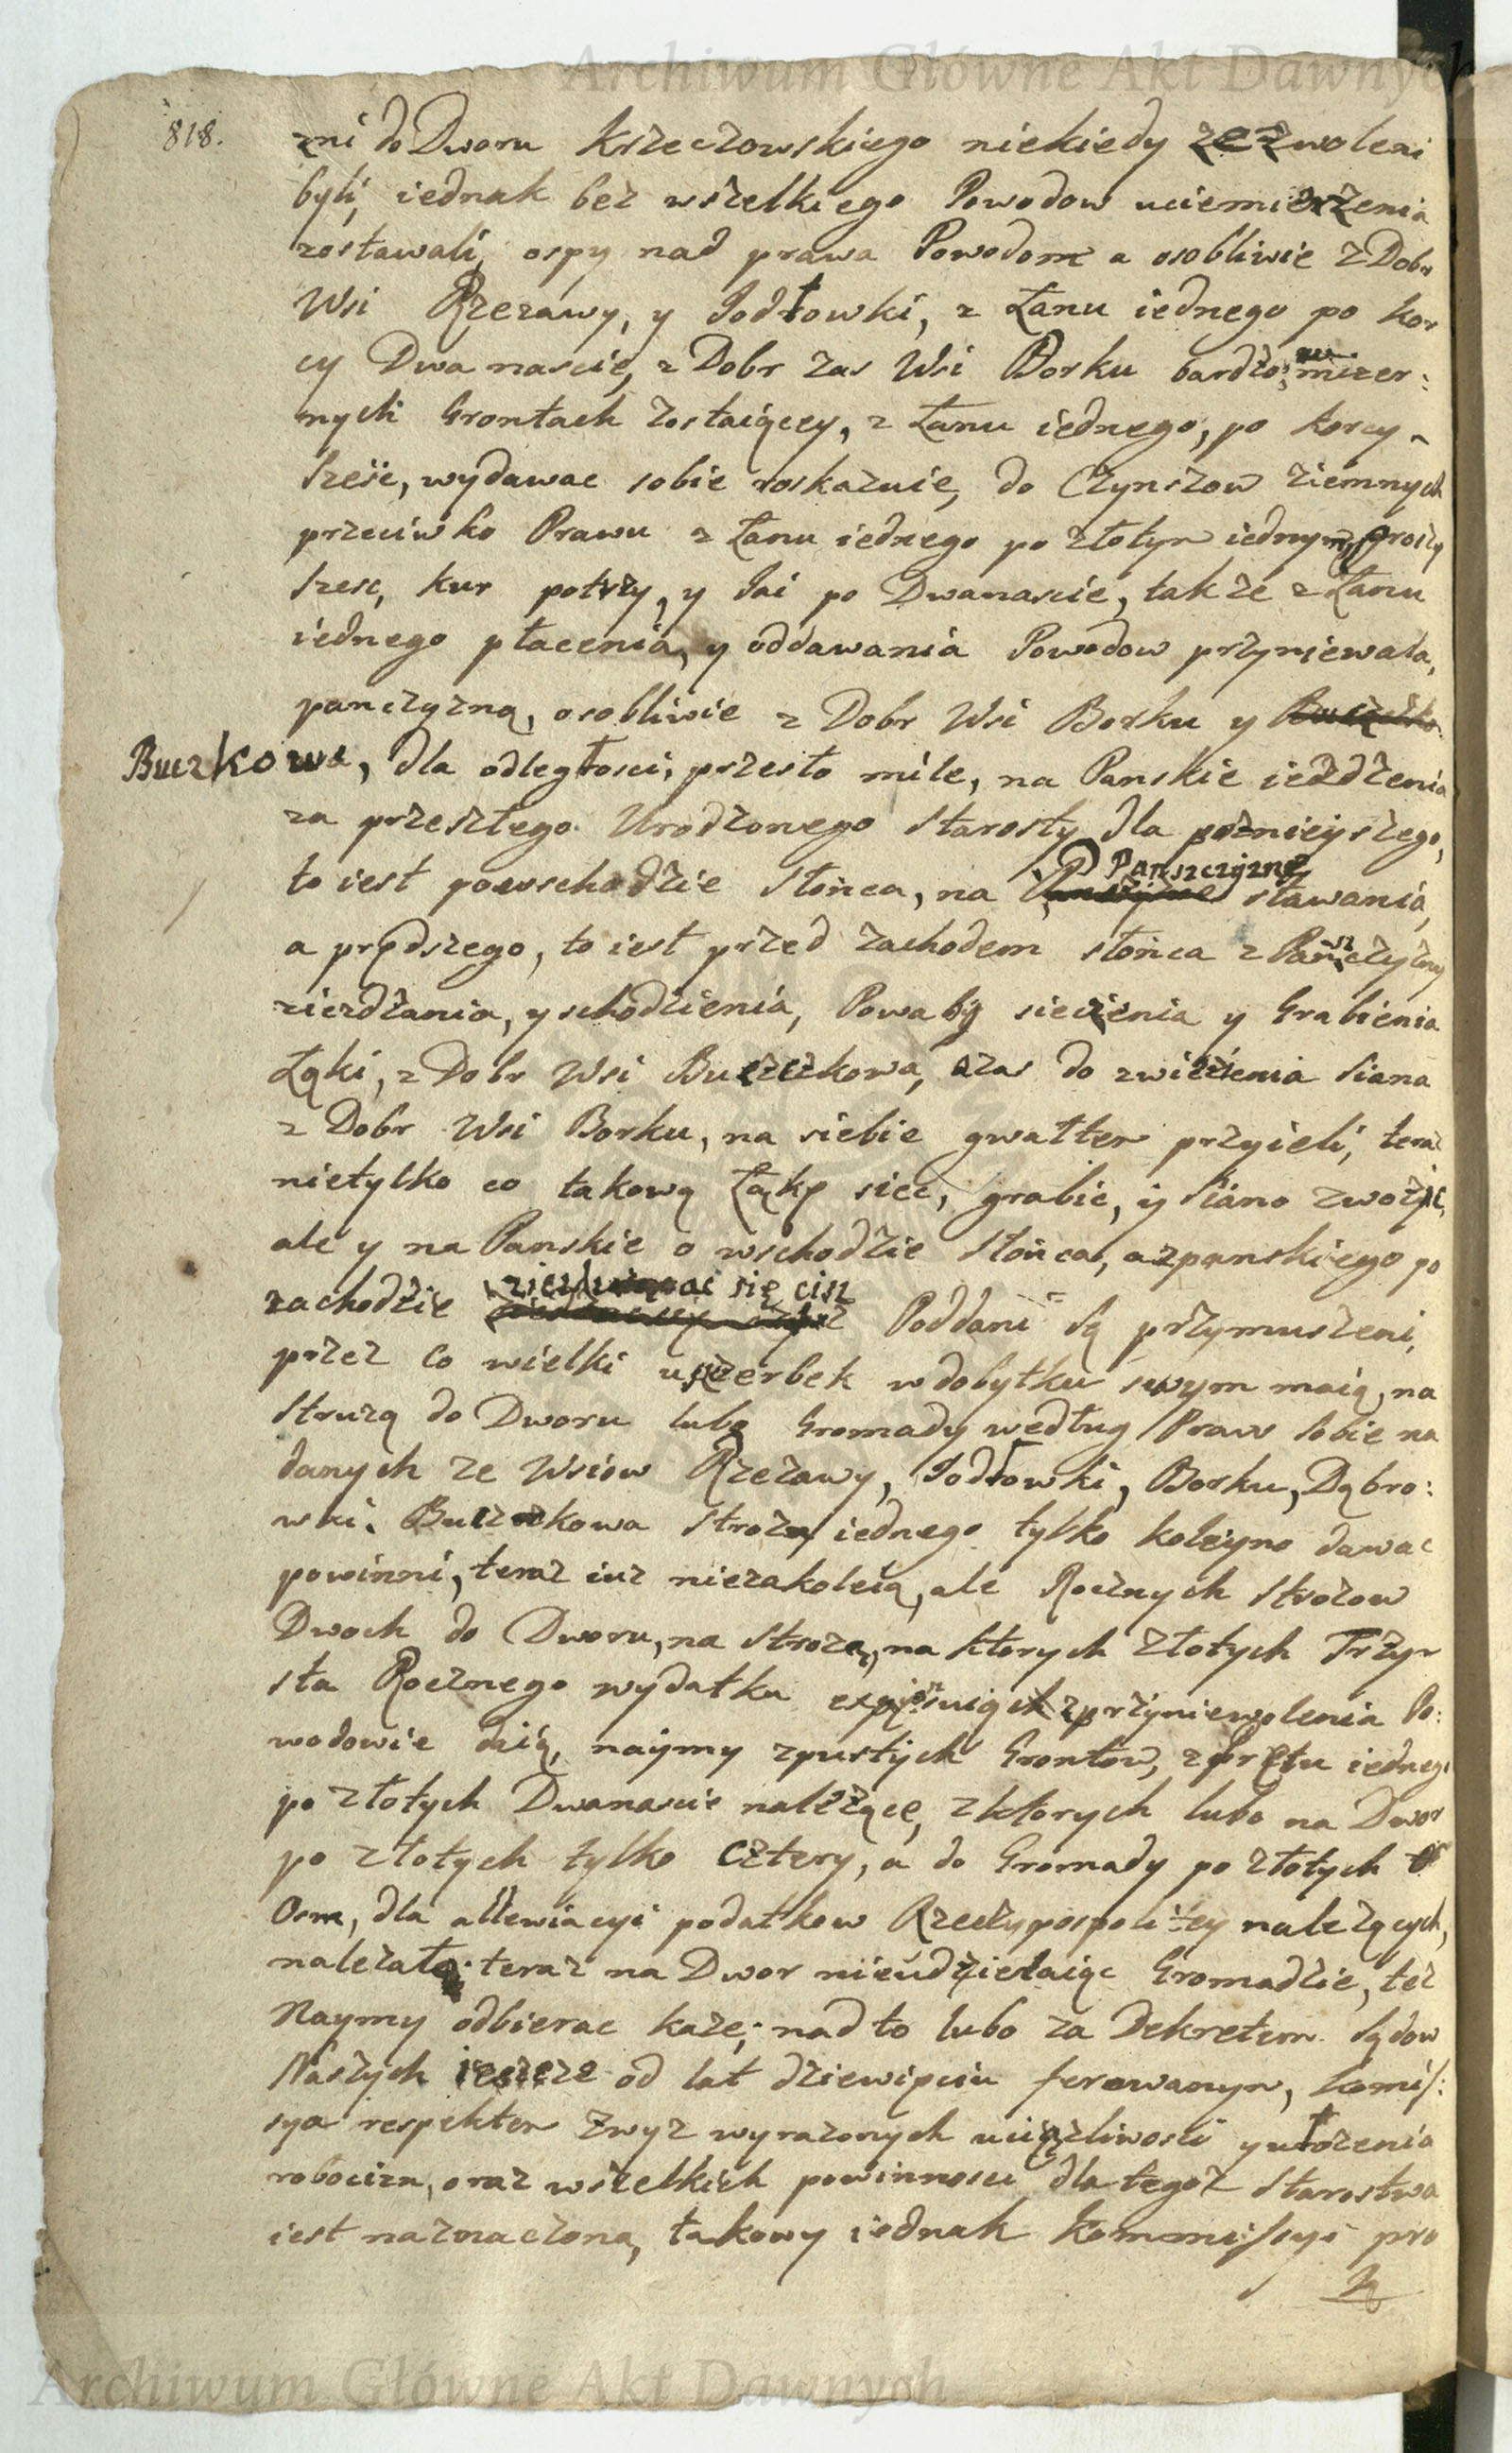 Archiwum Główne Akt Dawnych
818.
zni do Dworu Krzeczowskiego niekiedy zezwoleni
byli, iednak bez wszelkiego Powodow uciemiężenia
zostawali, ospy nad prawa Powodom a osobliwie z Dobr
Wsi Rzezawy, y Jodłowki, z Łanu iednego po kor
cy Dwanascie, z Dobr zas Wsi Borku bardzo mizer:
nych Grontach zostaiącey, z Łanu iednego, po korcy
szesc, wydawac sobie roskazuie, do Czynszow ziemnych
przeciwko Prawu z Łanu iednego po złotym iednym, groszy
szesc, kur potrzy, y Jai po Dwanascie, także z Łanu
iednego płacenia, y oddawania Powodow przyniewala,
panczyzną, osobliwie z Dobr Wsi Borku y
Buczkowa, dla odległosci, przeszło mile, na Panskie ieżdżenia
za przeszłego Urodzonego Starosty dla poznieyszego,
to iest powschodzie Słońca, na Panszczyznę stawania,
a prędszego, to iest przed zachodem słońca z Panszczyzny
ziezdżania, y schodzenia, Powaby sieczenia y Grabienia
Łąki, z Dobr Wsi Buczkowa, azas do zwiezienia Siana
z Dobr Wsi Borku, na siebie gwałtem przyieli, teraz
nietylko co takową Łąkę siec, grabic, y Siano zwozic,
ale y na Panskie o wschodzie Słońca, azpanskiego po
zachodzie się ciż Poddani są przymuszeni,
przez co wielki uszczerbek wdobytku swym maią, na
Struzą do Dworu lubo Gromady według Praw sobie na
danych ze Wsiow Rzezawy, Jodłowki, Borku, Dąbro:
wki. Buczkowa Stroza iednego tylko koleyno dawac
powinni, teraz iuz niezakoleią, ale Rocznych Strozow
Dwoch do Dworu, na Stroza, na ktorych złotych Trzy
sta Rocznego wydatku zprzyniewolenia Po:
wodowie naymy zpustych Grontow, z Prętu iednego
po złotych Dwanascie należące, z ktorych lubo na Dwor
po złotych tylko cztery, a do Gromady po złotych
Osm, dla allewiacyi podatkow Rzeczypospolitey należących,
należało; teraz na Dwor nieudzielaiąc Gromadzie, też
Naymy odbierac każe; nad to lubo za Dekretem Sądow
Naszych ieszcze od lat dziewięciu ferowanym, Komis:
sya respektem zwyż wyrażonych uciążliwosci y ułożenia
robocizn, oraz wszelkich powinnosci dla tegoż Starostwa
iest naznaczona, takowy iednak Kommissyi pro
Archiwum Główne Akt Dawnych